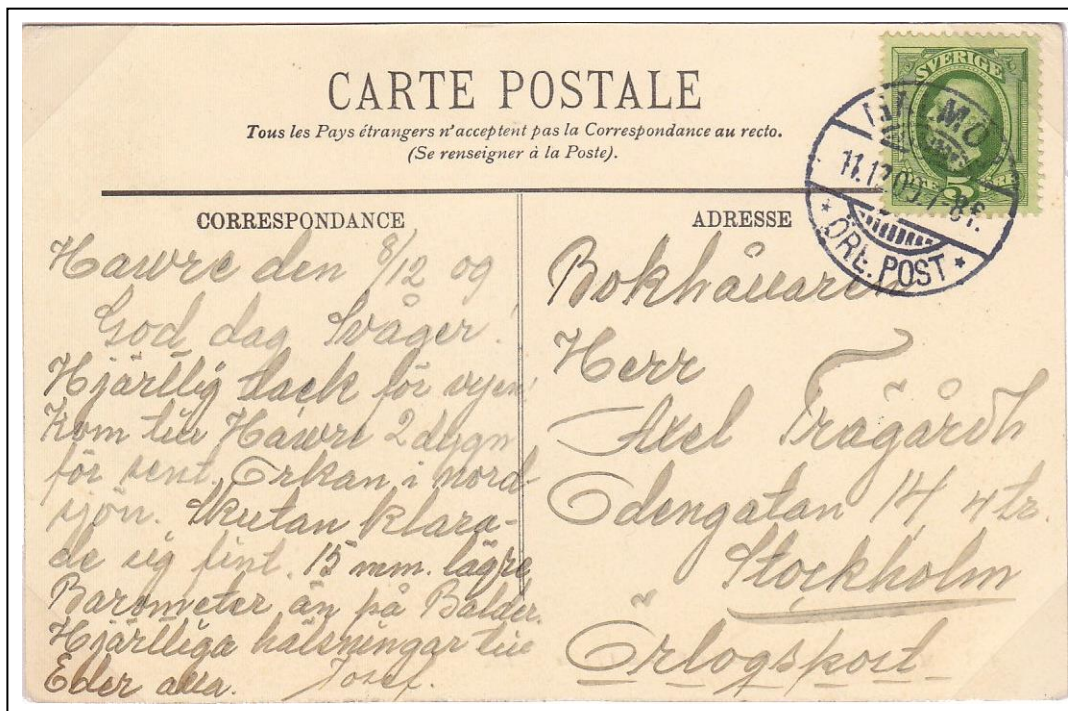 CARTE POSTALE
Tous les Pays étrangers n'acceptent pas la Correspondance au recto.
(Se renseigner à la Poste).
SVERIGE
5
11.12.09. 7-8 F.
ÖRL. POST
CORRESPONDANCE
Hawre den 8/12 09
God dag Svåger!
Hjärtlig tack för
Kom till Hawre 2 dygn
för sent. Orkan i nord-
sjön. Skutan klara-
de sig fint. 15 mm. lägre
Barometer än på Balder.
Hjärtliga hälsningar till
Eder alla. Josef.
ADRESSE
Bokhållaren
Herr
Axel Trägårdh
Odengatan 14 4 tr.
Stockholm
Örlogspost